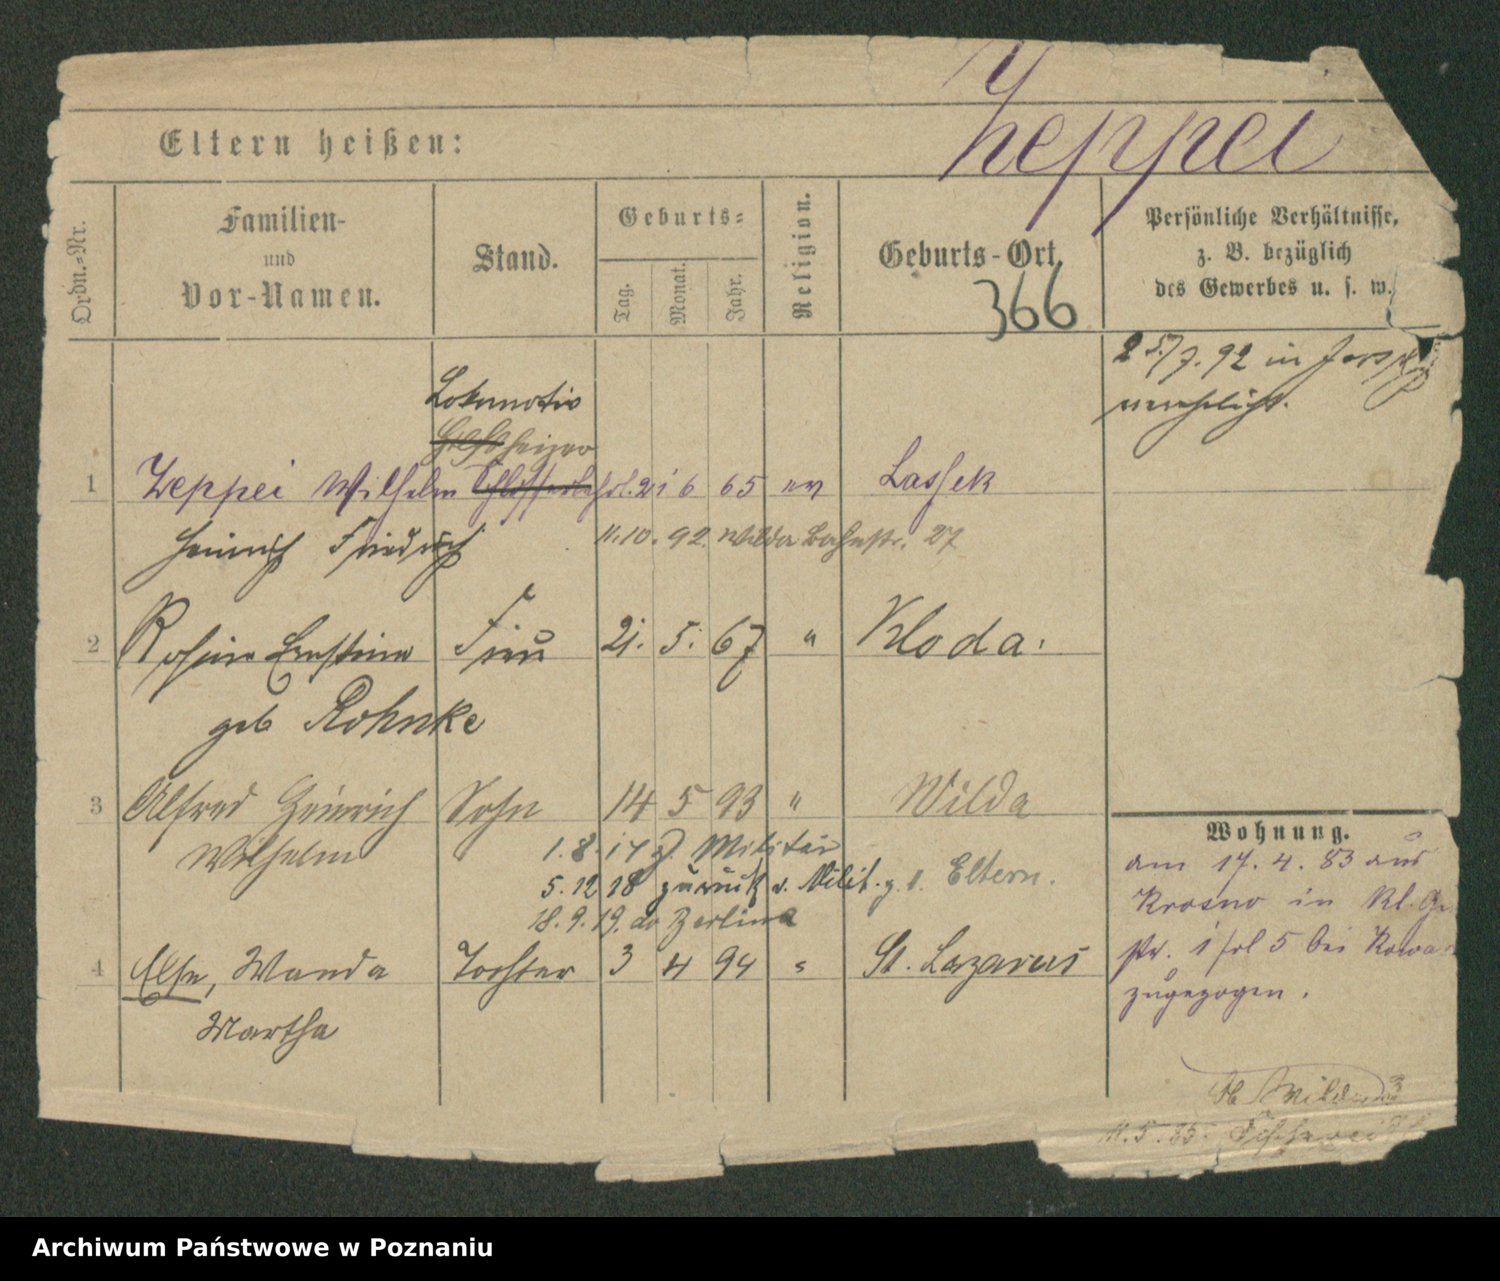 Zeppei
Eltern heißen:
Ordn.=Nr.
Familien-
und
Vor-Namen.
Stand.
Geburts=
Tag.
Monat.
Jahr.
Religion.
Geburts-Ort.
366
Persönliche Verhältnisse,
z. B. bezüglich
des Gewerbes u. s. w.
25/7. 92 in
verehelicht.
Lokomotiv
heizer
1 Zeppei Wilhelm Schlosserlehrl. 21 6 65 ev Lassek
Heinrich Friedrich 11.10.92. Wilda Bahnstr. 27
2 Rosine Ernstine Frau 21. 5. 67 " Kloda.
geb Rohnke
3 Alfred Heinrich Sohn 14 5 93 " Wilda
Wilhelm 1.8.17 z. Militär
5.12 18 zurück v. Milit. z. d. Eltern.
18.9.19. do Berlin
4 Else, Wanda Tochter 3 4 94 " St. Lazarus
Martha
Wohnung.
am 17.4.83 aus
Krosno in Kl. Ge
bei Kowa
zugezogen.
Wilda
11.5.85.
Archiwum Państwowe w Poznaniu